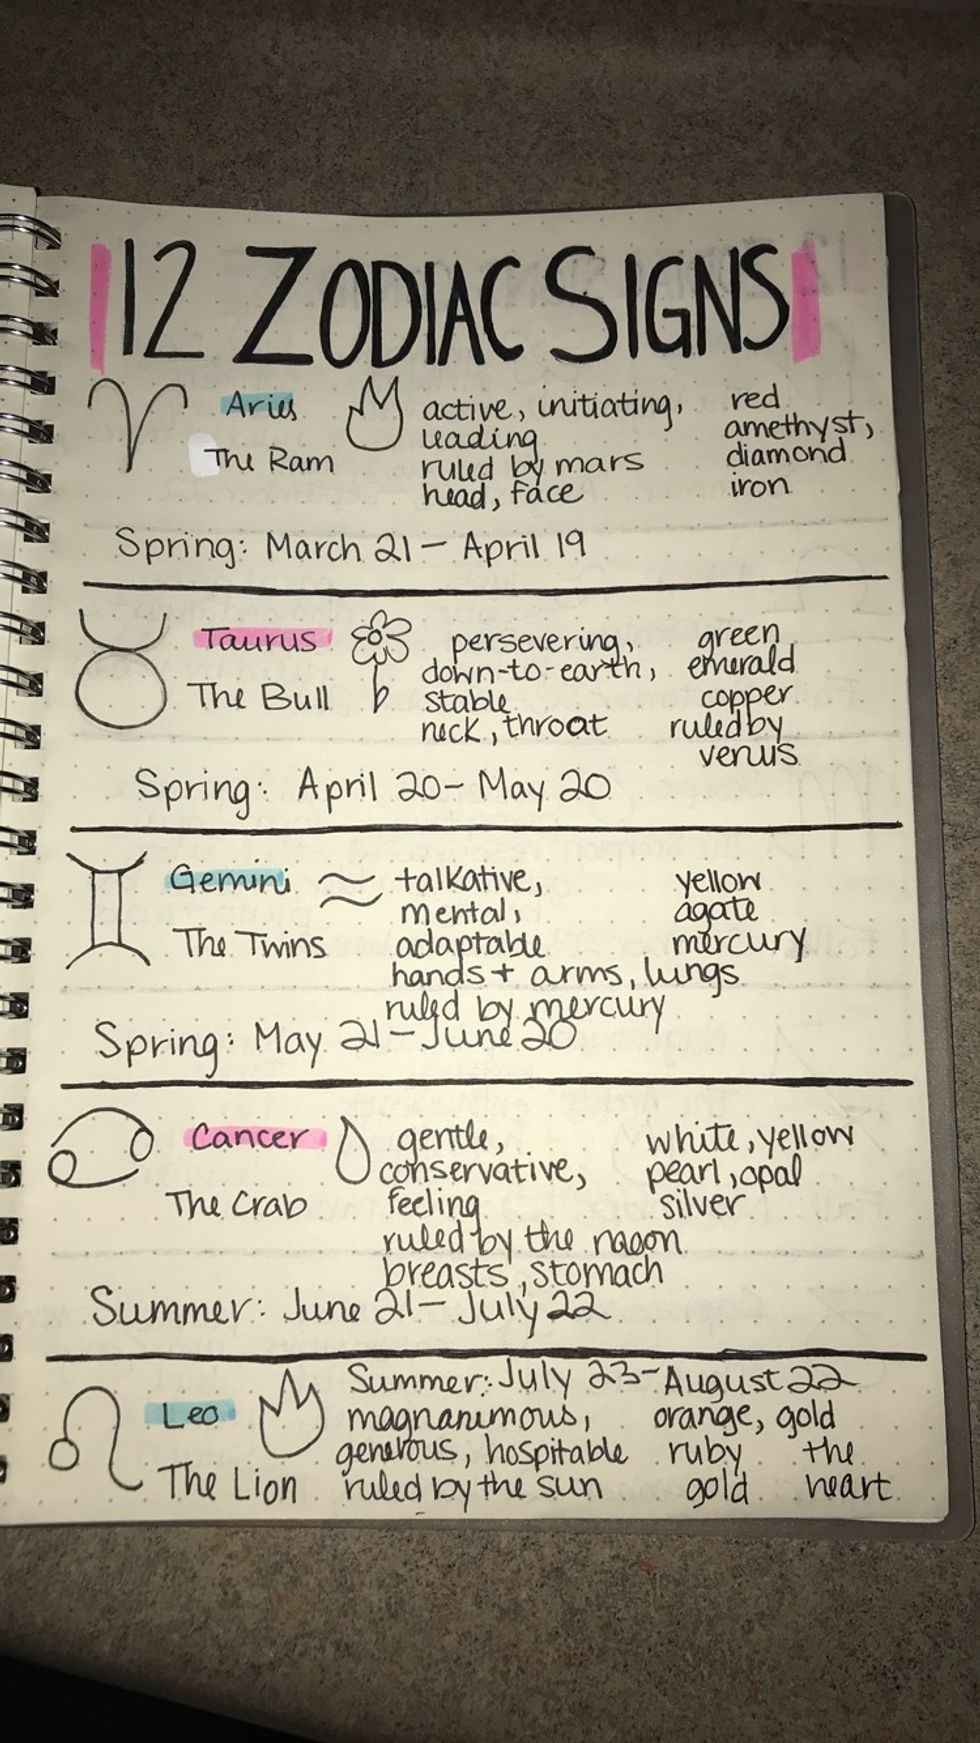 12 ZODIAC SIGNS
Aries
The Ram
active, initiating,
leading
ruled by mars
head, face
red
amethyst,
diamond
iron
Spring: March 21 - April 19
Taurus
The Bull
persevering,
down-to-earth,
stable
neck, throat
green
emerald
copper
ruled by
venus
Spring: April 20 - May 20
Gemini
The Twins
talkative,
mental,
adaptable
hands + arms, lungs
ruled by mercury
yellow
agate
mercury
Spring: May 21 - June 20
Cancer
The Crab
gentle,
conservative,
feeling
ruled by the moon
breasts, stomach
white, yellow
pearl, opal
silver
Summer: June 21 - July 22
Leo
The Lion
Summer: July 23 - August 22
magnanimous,
generous, hospitable
ruled by the sun
orange, gold
ruby
gold
the
heart